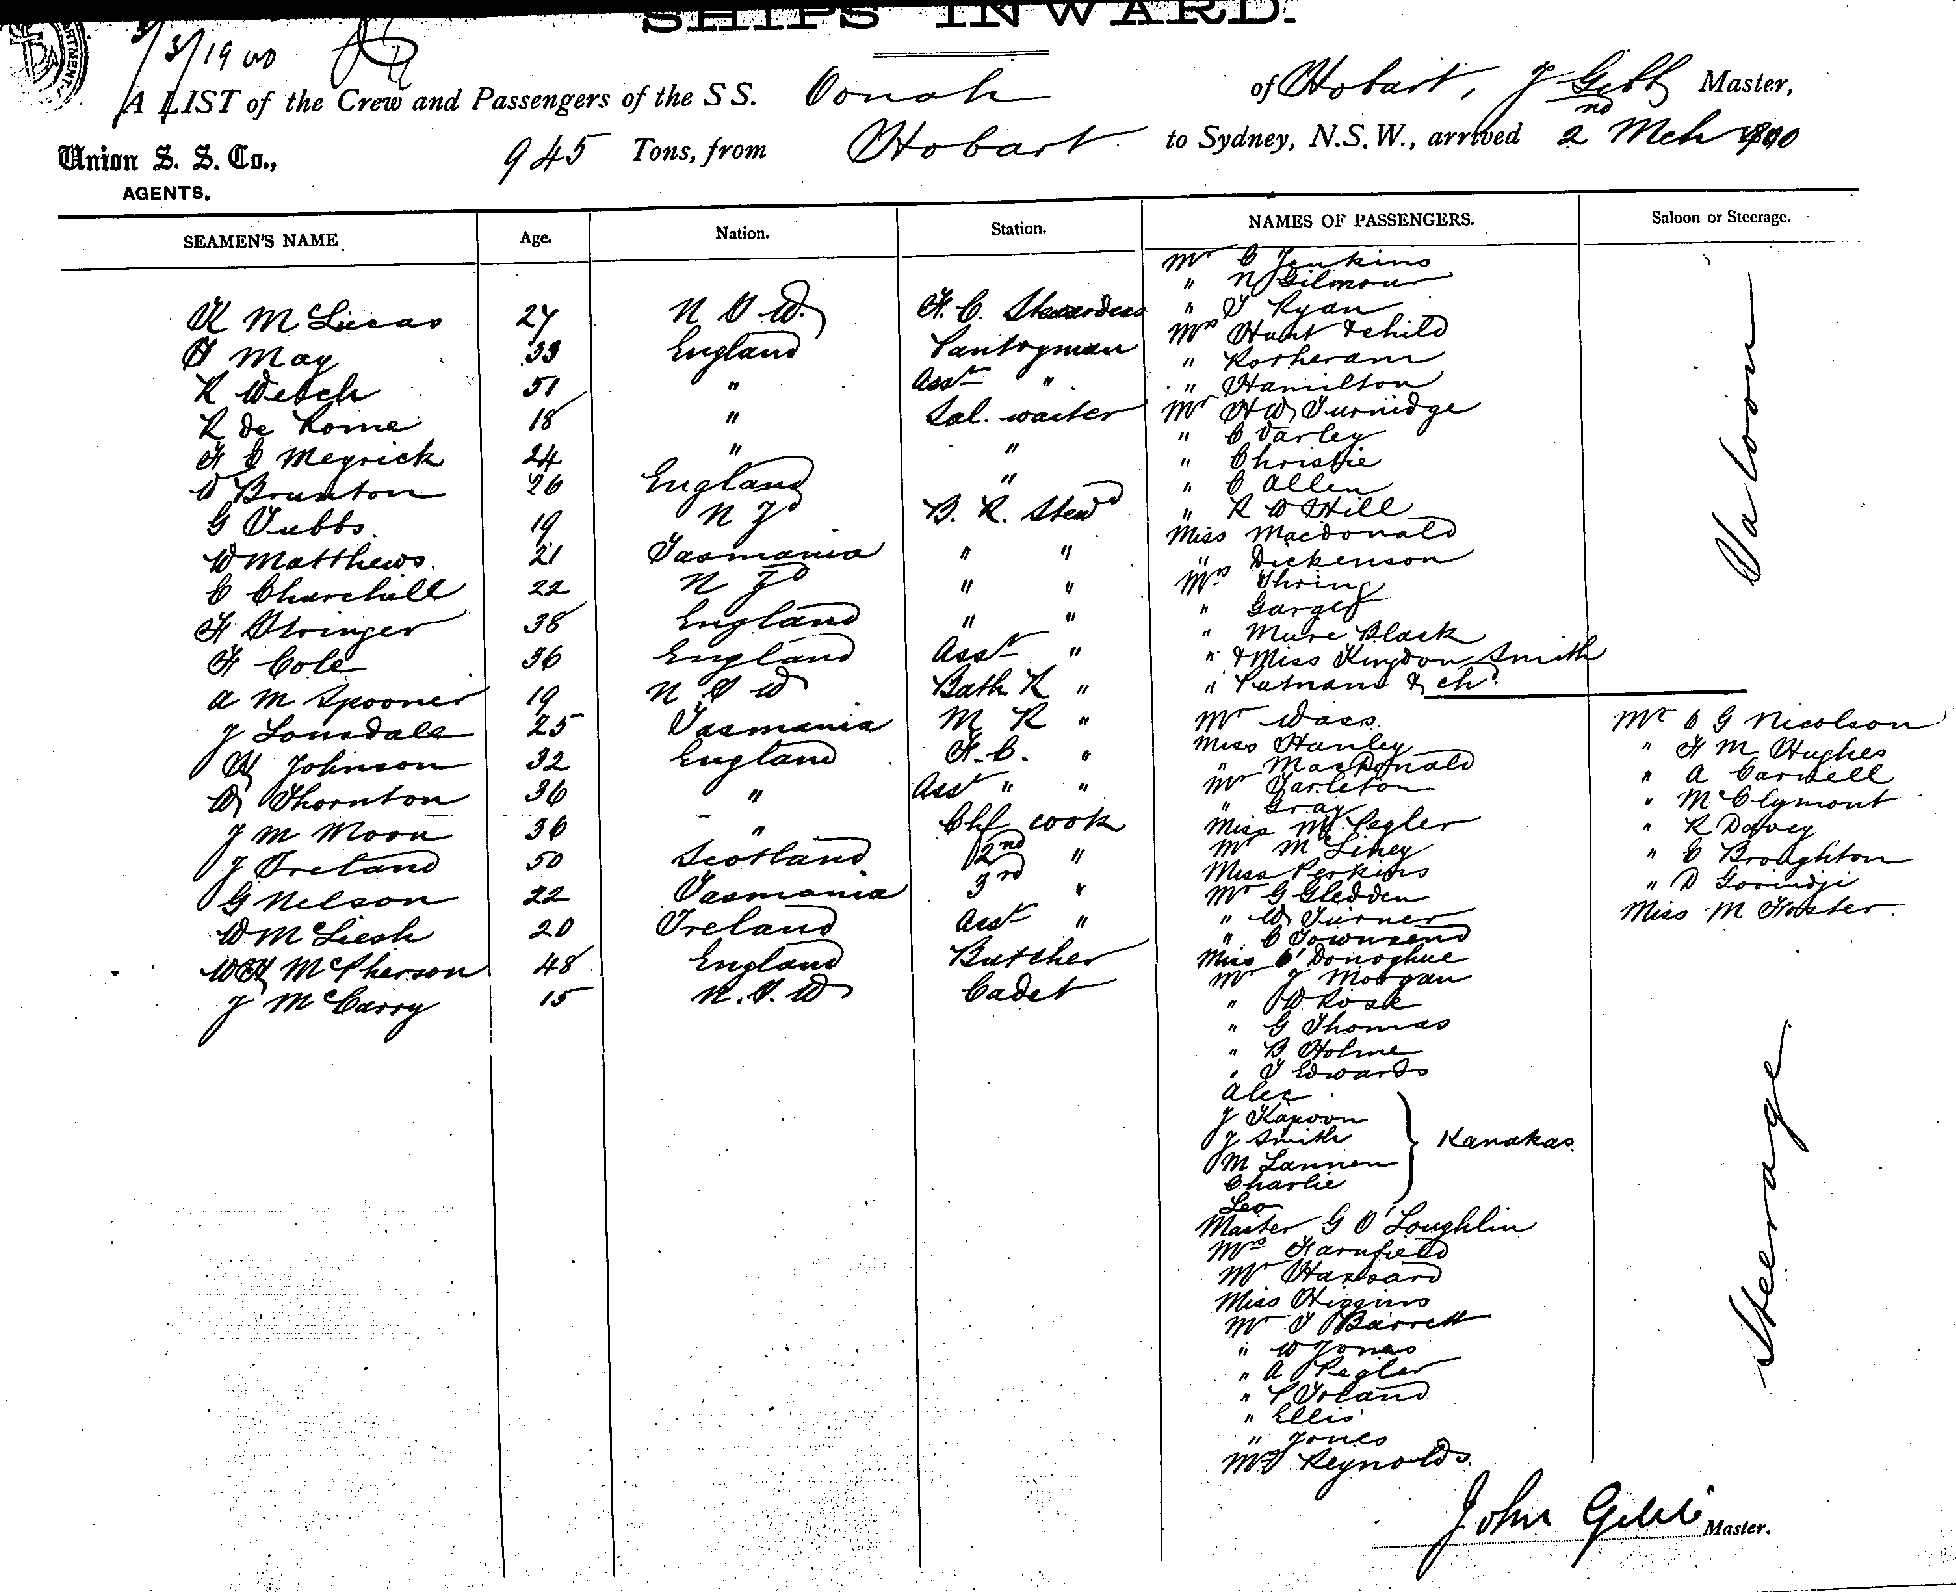 SHIPS INWARD.
3/3/1900
A LIST of the Crew and Passengers of the S S. Oonah of Hobart, J Gibb Master,
Union S. S. Co., 945 Tons, from Hobart to Sydney, N.S.W., arrived 2nd Mch 1900
AGENTS.
SEAMEN'S NAME Age. Nation. Station. NAMES OF PASSENGERS. Saloon or Steerage.
K McLucas 27 N S W. F. C. Stewardess
F May 33 England Pantryman
R Welch 51 " Asst "
R de Rome 18 " Sal. waiter
F C Meyrick 24 " "
D Brunton 26 England "
G Tubbs 19 N Zd B. R. Stewd
W Matthews. 21 Tasmania " "
C Churchill 22 N Zd " "
F Stringer 38 England " "
F Cole 36 England Asst "
A M Spooner 19 N S W Bath R "
J Lonsdale 25 Tasmania M R "
H Johnson 32 England F. C. "
W Thornton 36 " Asst " "
J M Moon 36 " Chf cook
J Ireland 50 Scotland 2nd "
G Nelson 22 Tasmania 3rd "
W McLiesh 20 Ireland Asst "
WH McPherson 48 England Butcher
J McCarry 15 N. S. W Cadet
Mr C Jenkins
" N Gilmour
" T Ryan
Mrs Hunt & child
" Rotheram
" Hamilton
Mr H W Turnidge
" C Varley
" Christie
" C Allen
" R D Hill
Miss Macdonald
" Dickenson
Mrs Thring
"
" Mure Black
" & Miss Kingdon Smith
" Putnam & chd
Saloon
Mr Wass.
Miss Hanley
" MacDonald
Mr Tarleton
" Gray
Miss M Pegler
Mr M Liney
Miss Perkins
Mr G Gledden
" W Turner
" C Townsend
Miss O'Donoghue
Mr J Morgan
" D Rose
" G Thomas
" B Holme
" T Edwards
Alec
J Kapoon
J Smith
M Lannen
Charlie
Leo
Kanakas.
Master G O'Loughlin
Mrs Farnfield
Mr Hassard
Miss Higgins
Mr T Barrett
" W Jones
" A Pegler
" P Toland
" Ellis
" Jones
Mrs Reynolds.
Mr C G Nicolson
" F M Hughes
" A Carnell
" McClymont
" R Davey
" C Broughton
" D Govindji
Miss M Foster.
Steerage
John Gibb Master.